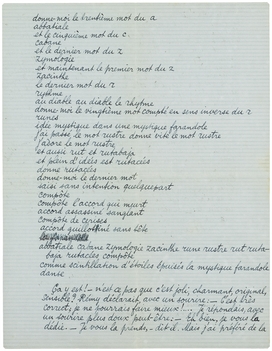 donne-moi le trentième mot du a
abbatiale
et le cinquième mot du c.
caborne
et le dernier mot du z
zymologie
et maintenant le premier mot du z
zacinthe
le dernier mot du r
rythme
au diable au diable le rhytme
donne-moi le vingtième mot compté en sens inverse du r
runes
idée mystique dans une mystique farandole
j'ai passé le mot rustre donne vite le mot rustre
j'adore le mot rustre
et aussi rut et rutabaja
et plein d'idées est rutacées
donne rutacées
donne-moi le dernier mot
saisi sans intention quelquepart
compote
compôte l'accord qui meurt
accord assassiné sanglant
compôte de cerises
accord guillotiné sans tête
abbatiale caborne zymologie zacinthe rune rustre rut ruta-
baja rutacées compôte
comme scintillation d'étoiles épuisées la mystique farandole
danse
Ça y est! – n'est ce pas que c'est joli, charmant, original,
sensible? Rémy déclarait, avec un sourire: – C'est très
correct, je ne pourrais faire mieux!.... Je répondais, avec
un sourire plus doux peut-être: – Eh bien, je vous la
dédie. – Je vous la prends, – dit-il. Mais j'ai préféré de la